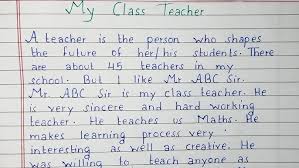 My Class Teacher
A teacher is the person who shapes
the future of her/his students. There
are about 45 teachers in my
school. But I like Mr ABC Sir.
Mr. ABC Sir is my class teacher. He
is very sincere and hard working
teacher. He teaches us Maths. He
makes learning process very
interesting as well as creative. He
was willing to teach anyone as